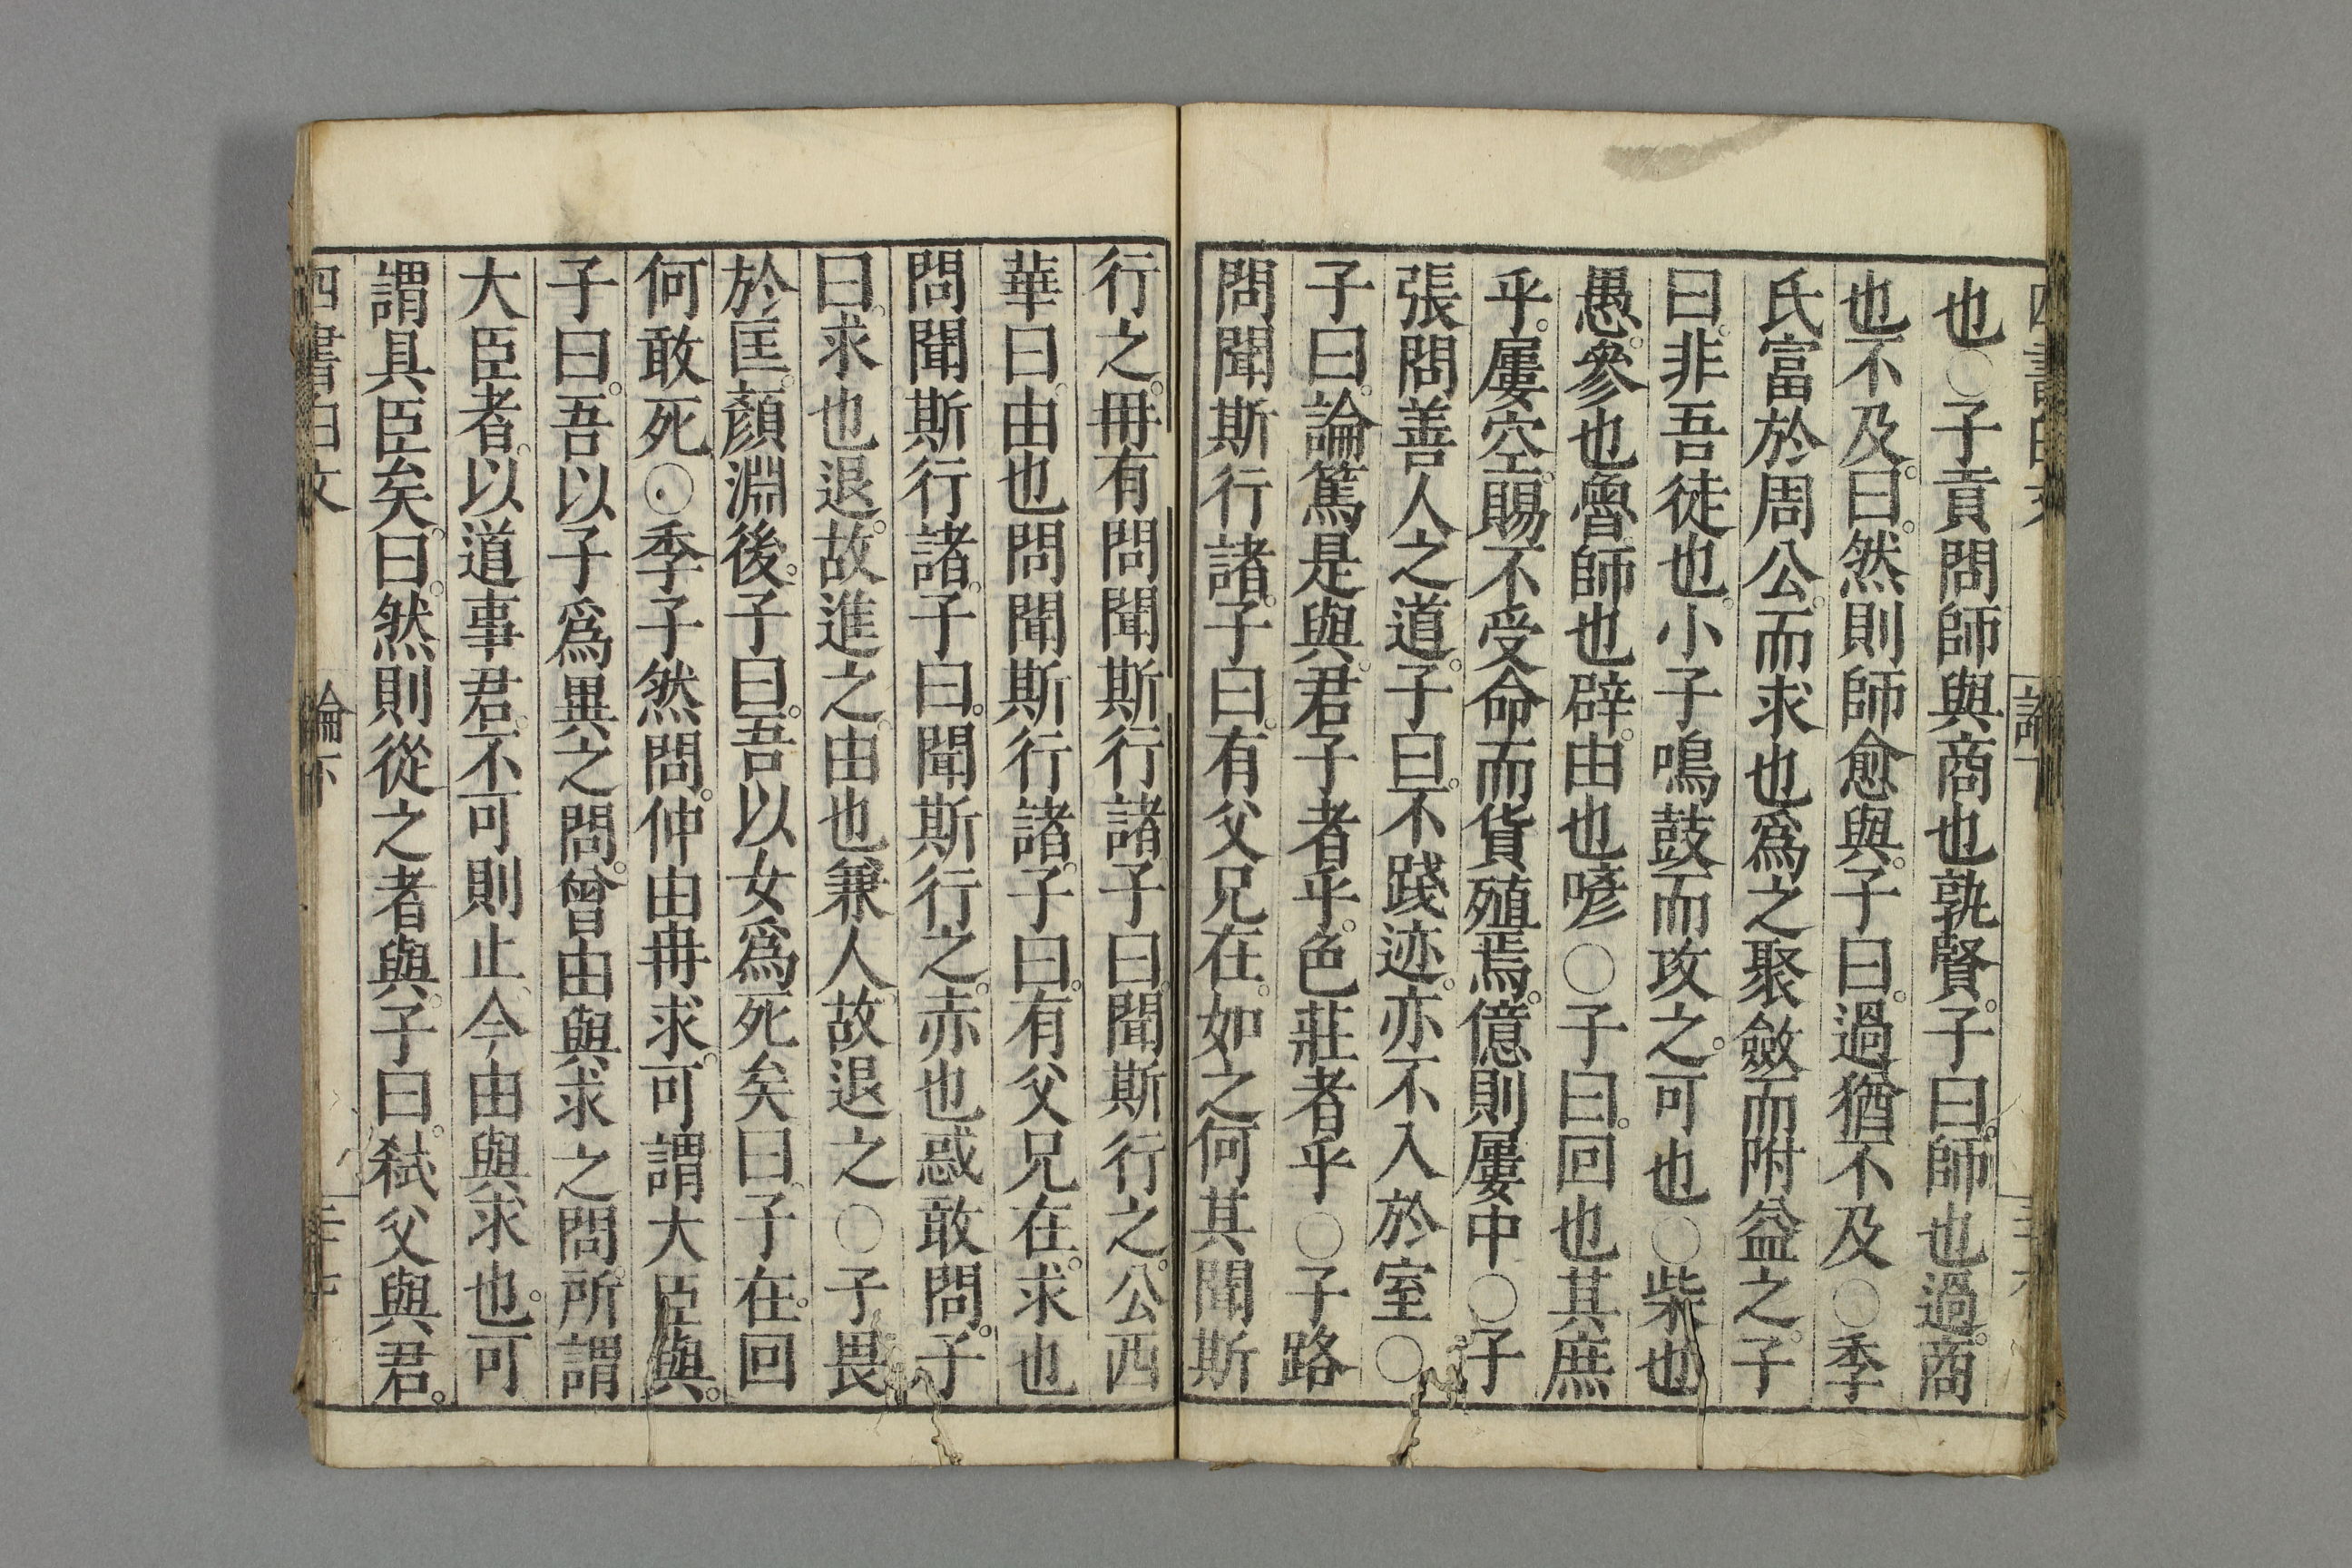 也○子貢問師與商也孰賢。子曰。師也過。商
也不及。曰。然則師愈與。子曰。過猶不及○季
氏富於周公。而求也爲之聚斂而附益之。子
曰。非吾徒也。小子鳴鼓而攻之。可也○柴也
愚。參也魯師也辟。由也喭○子曰。回也其庶
乎。屢空。賜不受命而貨殖焉。億則屢中○子
張問善人之道。子曰。不踐迹。亦不入於室○
子曰。論篤是與。君子者乎。色莊者乎○子路
問聞斯行諸。子曰。有父兄在。如之何其聞斯
行之。冉有問聞斯行諸子曰。聞斯行之。公西
華曰。由也問聞斯行諸。子曰。有父兄在。求也
問聞斯行諸。子曰。聞斯行之。赤也惑敢問。子
曰。求也退。故進之。由也兼人。故退之○子畏
於匡。顏淵後。子曰。吾以女爲死矣曰。子在。回
何敢死○季子然問。仲由冉求。可謂大臣與。
子曰。吾以子爲異之問。曾由與求之問。所謂
大臣者。以道事君。不可則止。今由與求也。可
謂具臣矣。曰。然則從之者與。子曰。弑父與君。
四書白文
論下